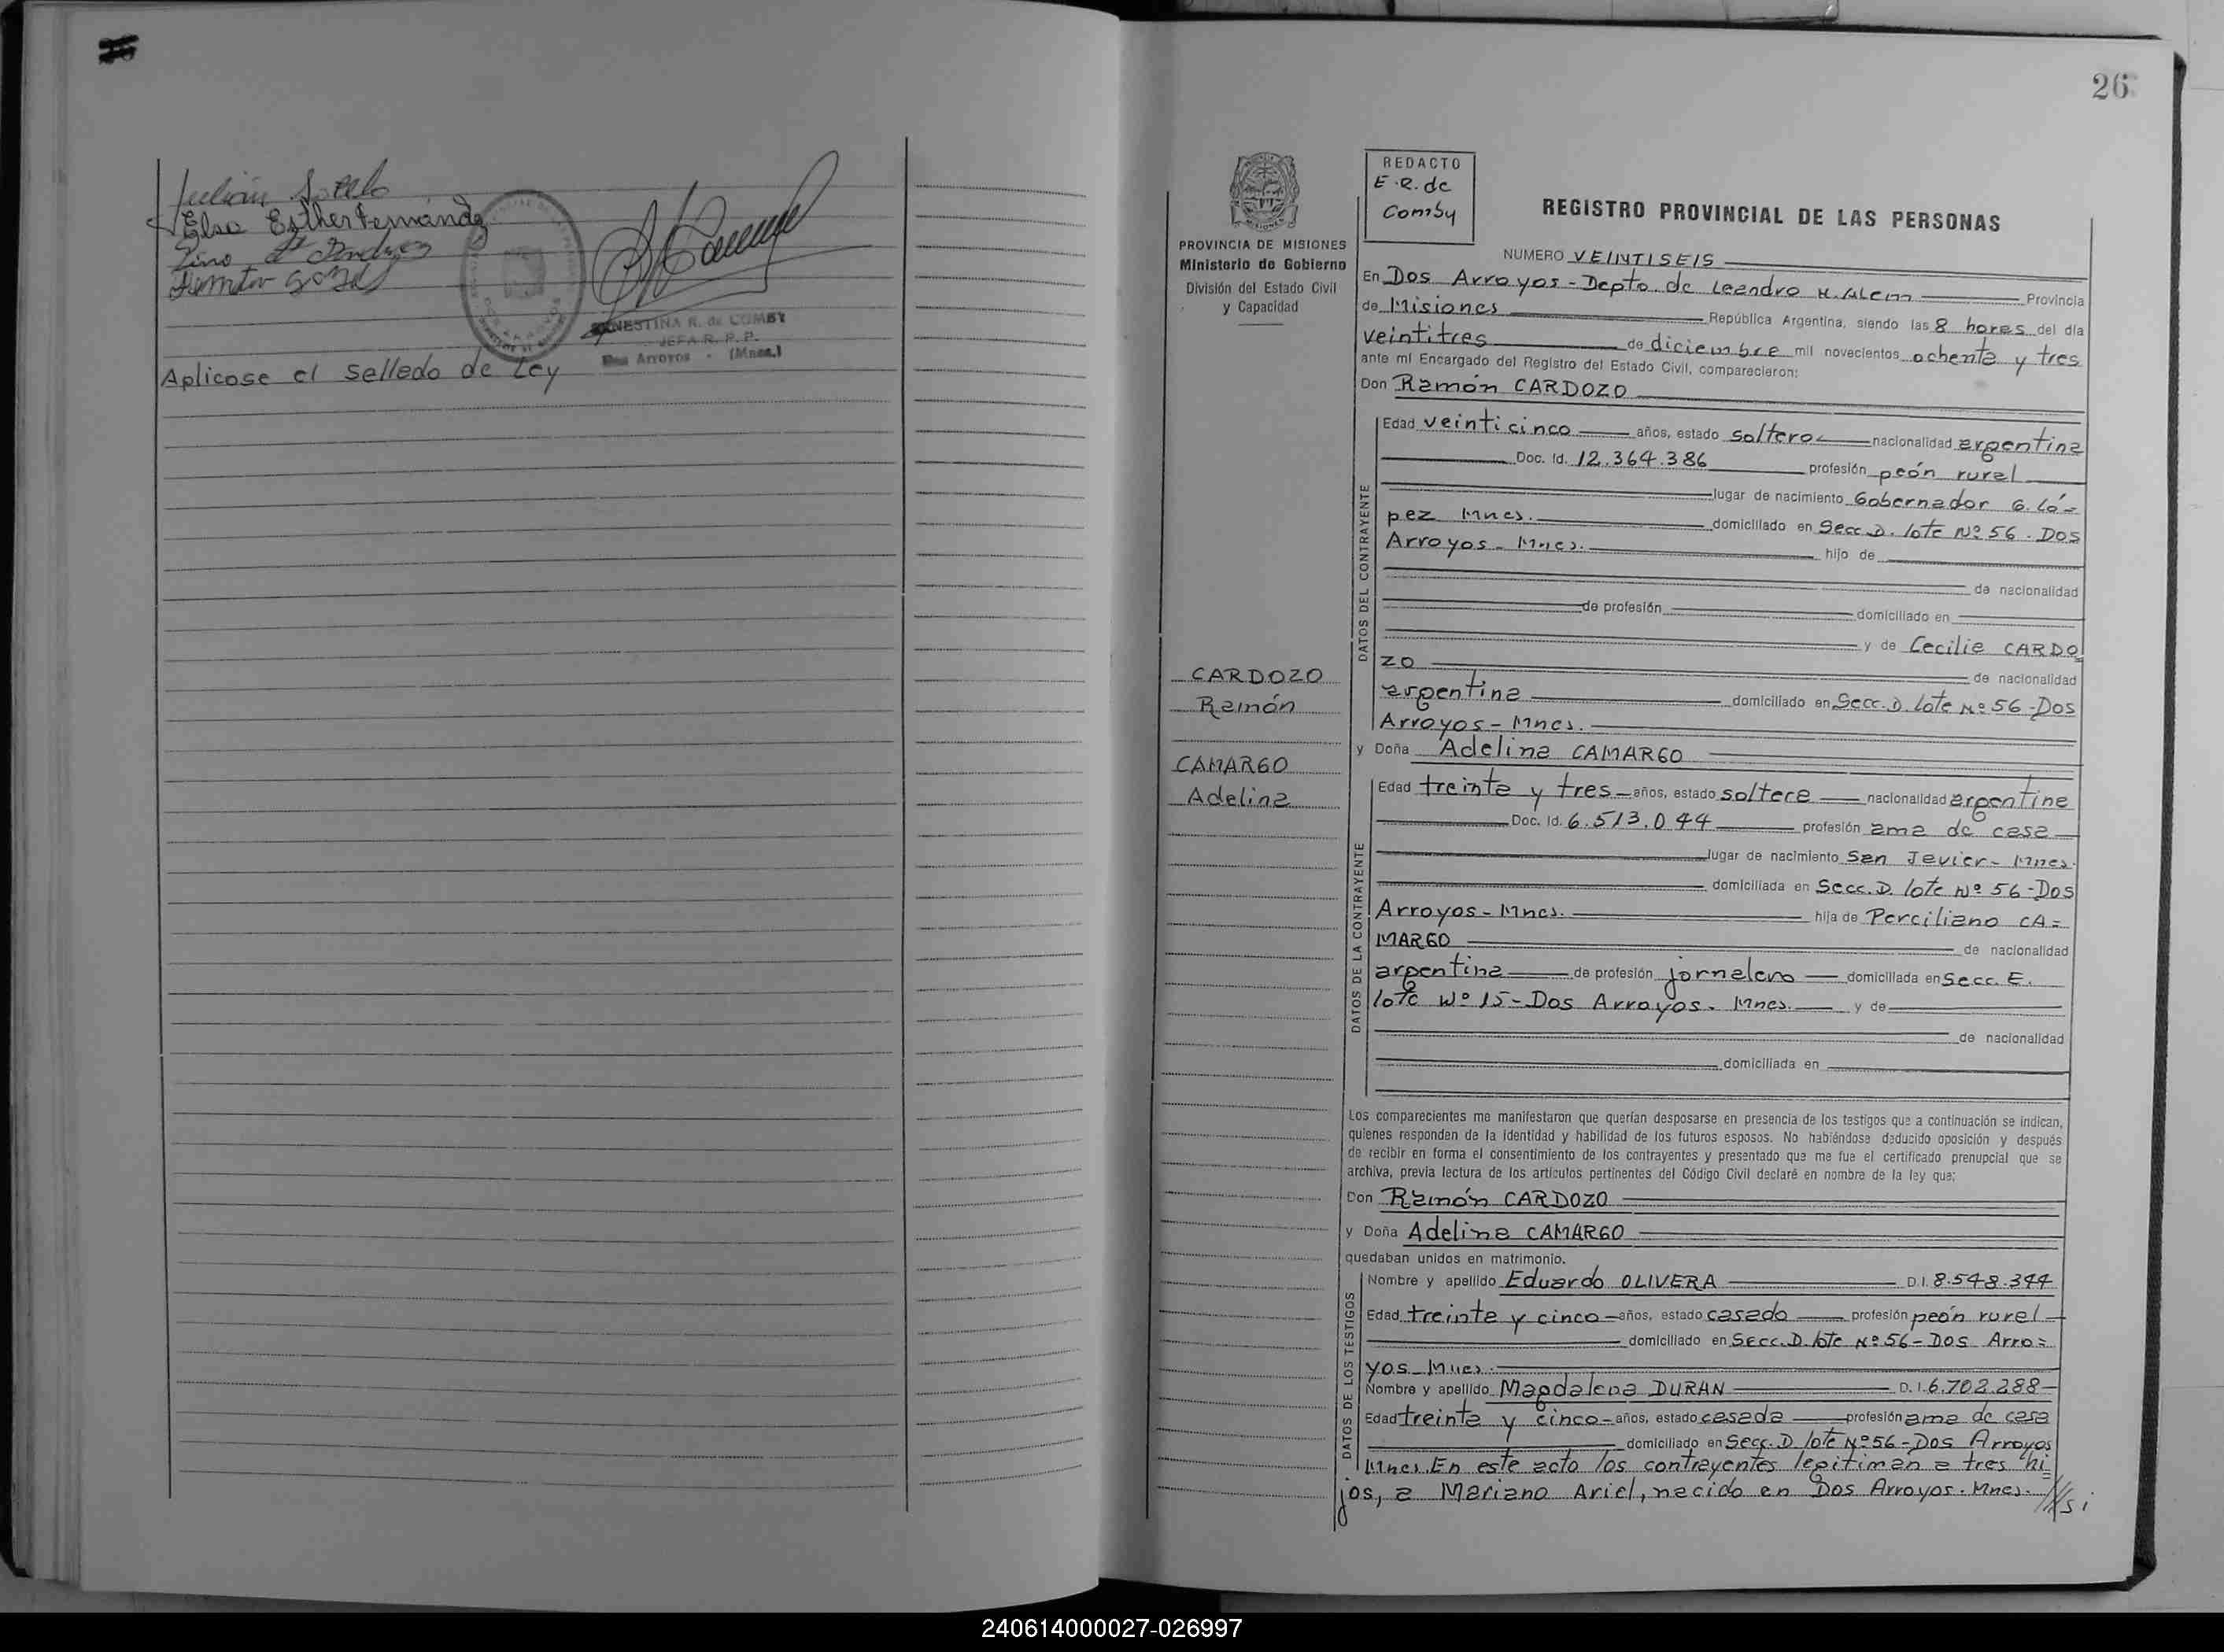 Julián Sotelo
Elsa Esther Fernández
Lino
ERNESTINA R. de COMBY
JEFA R. P. P.
Dos Arroyos - (Mnes.)
Aplicose el sellado de Ley
26
REDACTO
E.R. de
Comby
REGISTRO PROVINCIAL DE LAS PERSONAS
PROVINCIA DE MISIONES
Ministerio de Gobierno
División del Estado Civil
y Capacidad
NUMERO VEINTISEIS
En Dos Arroyos - Depto. de Leandro N. Alem Provincia
de Misiones República Argentina, siendo las 8 horas del día
veintitres de diciembre mil novecientos ochenta y tres
ante mí Encargado del Registro del Estado Civil, comparecieron:
Don Ramón CARDOZO
DATOS DEL CONTRAYENTE
Edad veinticinco años, estado soltero nacionalidad argentina
Doc. Id. 12.364.386 profesión peón rural
lugar de nacimiento Gobernador G. Ló-
pez Mnes. domiciliado en Secc. D. lote Nº 56. Dos
Arroyos - Mnes. hijo de
de nacionalidad
de profesión domiciliado en
y de Cecilia CARDO
ZO de nacionalidad
argentina domiciliado en Secc. D. Lote Nº 56 - Dos
Arroyos - Mnes.
CARDOZO
Ramón
CAMARGO
Adelina
y Doña Adelina CAMARGO
DATOS DE LA CONTRAYENTE
Edad treinta y tres años, estado soltera nacionalidad argentina
Doc. Id. 6.513.044 profesión ama de casa
lugar de nacimiento San Javier - Mnes.
domiciliada en Secc. D. lote Nº 56 - Dos
Arroyos - Mnes. hija de Perciliano CA=
MARGO de nacionalidad
argentina de profesión jornalero domiciliada en Secc. E.
lote Nº 15 - Dos Arroyos - Mnes. y de
de nacionalidad
domiciliada en
Los comparecientes me manifestaron que querían desposarse en presencia de los testigos que a continuación se indican,
quienes responden de la identidad y habilidad de los futuros esposos. No habiéndose deducido oposición y después
de recibir en forma el consentimiento de los contrayentes y presentado que me fue el certificado prenupcial que se
archiva, previa lectura de los artículos pertinentes del Código Civil declaré en nombre de la ley que:
Don Ramón CARDOZO
y Doña Adelina CAMARGO
quedaban unidos en matrimonio.
DATOS DE LOS TESTIGOS
Nombre y apellido Eduardo OLIVERA D.I. 8.548.344
Edad treinta y cinco años, estado casado profesión peón rural
domiciliado en Secc. D. lote Nº 56 - Dos Arro=
yos - Mnes.
Nombre y apellido Magdalena DURAN D.I. 6.702.288
Edad treinta y cinco años, estado casada profesión ama de casa
domiciliado en Secc. D lote Nº 56 - Dos Arroyos
Mnes. En este acto los contrayentes legitiman a tres hi=
jos, a Mariano Ariel, nacido en Dos Arroyos. Mnes. ///si
240614000027-026997